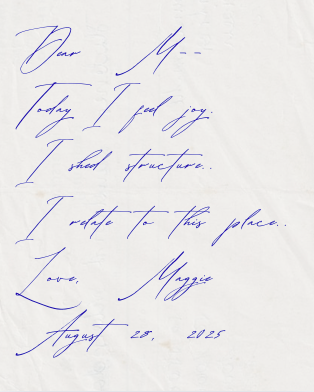 Dear M--
Today I feel joy.
I shed structure..
I relate to this place..
Love, Maggie
August 28, 2025